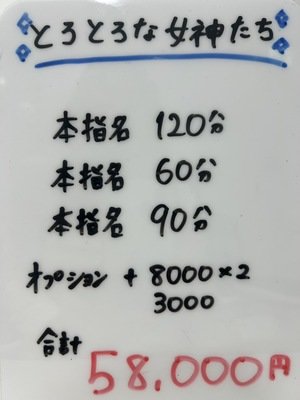 とろとろな女神たち
本指名 120分
本指名 60分
本指名 90分
オプション + 8000×2
3000
合計 58.000円